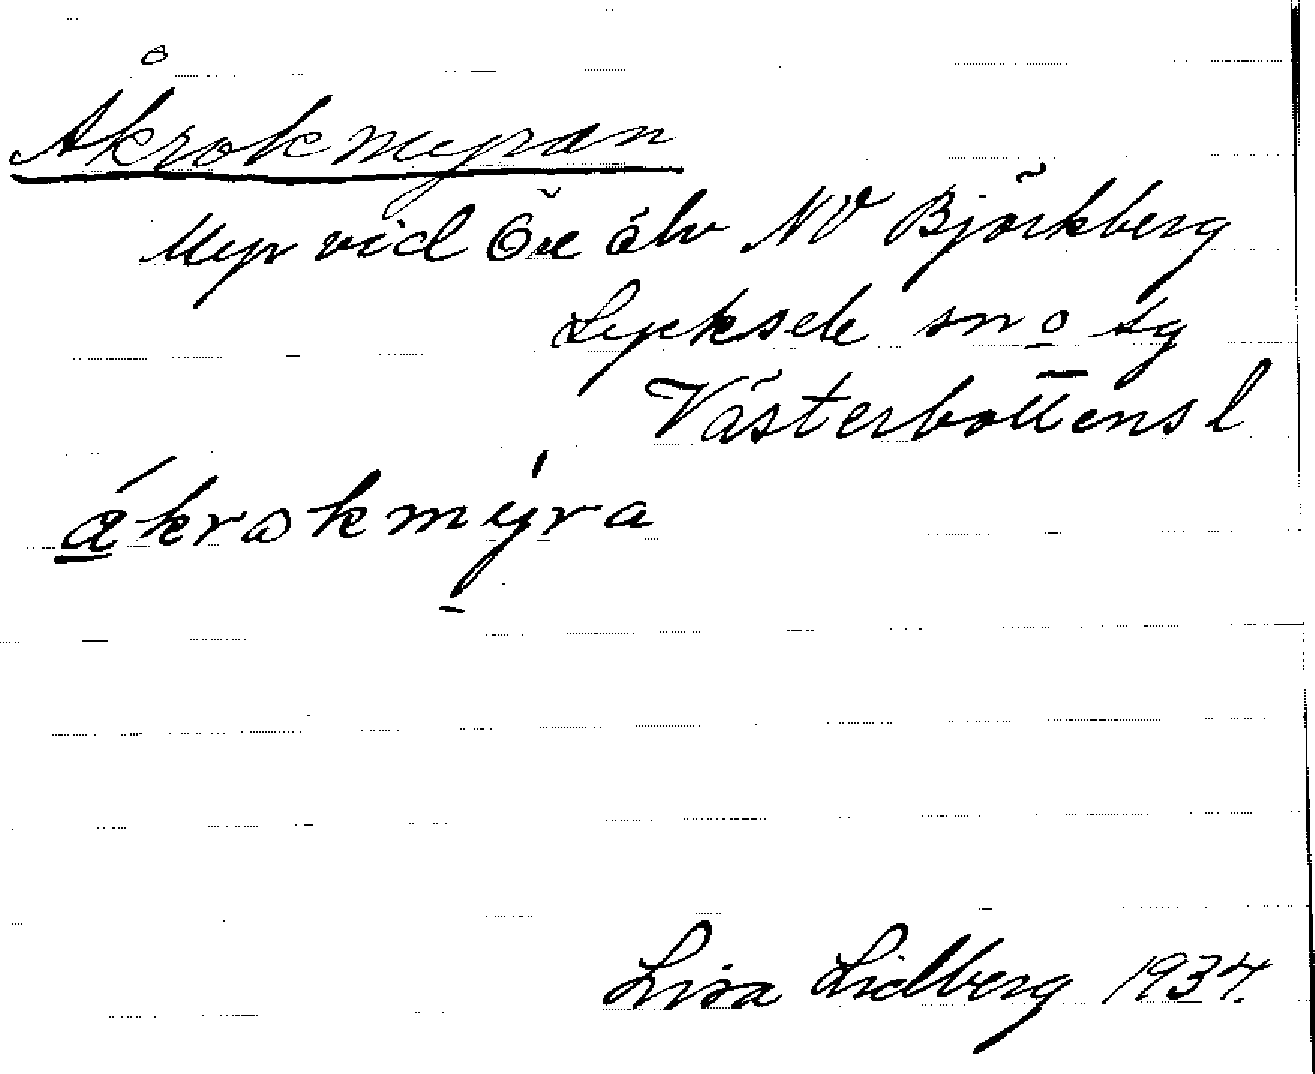 Åkrokmyran
Myr vid Öre älv NV Björkberg
Lycksele sn o tg
Västerbottens l
åkrokmyra
Lisa Lidberg 1934.